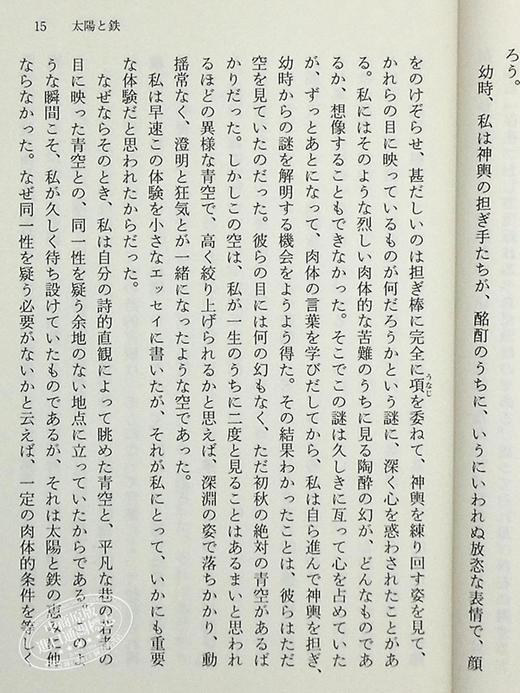 15 太陽と鉄
ろう。
幼時、私は神輿の担ぎ手たちが、酩酊のうちに、いうにいわれぬ放恣な表情で、顔
をのけぞらせ、甚だしいのは担ぎ棒に完全に項を委ねて、神輿を練り回す姿を見て、
うなじ
かれらの目に映っているものが何だろうかという謎に、深く心を惑わされたことがあ
る。私にはそのような烈しい肉体的な苦難のうちに見る陶酔の幻が、どんなものであ
るか、想像することもできなかった。そこでこの謎は久しきに亙って心を占めていた
が、ずっとあとになって、肉体の言葉を学びだしてから、私は自ら進んで神輿を担ぎ、
幼時からの謎を解明する機会をようよう得た。その結果わかったことは、彼らはただ
空を見ていたのだった。彼らの目には何の幻もなく、ただ初秋の絶対の青空があるば
かりだった。しかしこの空は、私が一生のうちに二度と見ることはあるまいと思われ
るほどの異様な青空で、高く絞り上げられるかと思えば、深淵の姿で落ちかかり、動
揺常なく、澄明と狂気とが一緒になったような空であった。
私は早速この体験を小さなエッセイに書いたが、それが私にとって、いかにも重要
な体験だと思われたからだった。
なぜならそのとき、私は自分の詩的直観によって眺めた青空と、平凡な巷の若者の
目に映った青空との、同一性を疑う余地のない地点に立っていたからである。このよ
うな瞬間こそ、私が久しく待ち設けていたものであるが、それは太陽と鉄の恵
ならなかった。なぜ同一性を疑う必要がないかと云えば、一定の肉体的条件を等しく